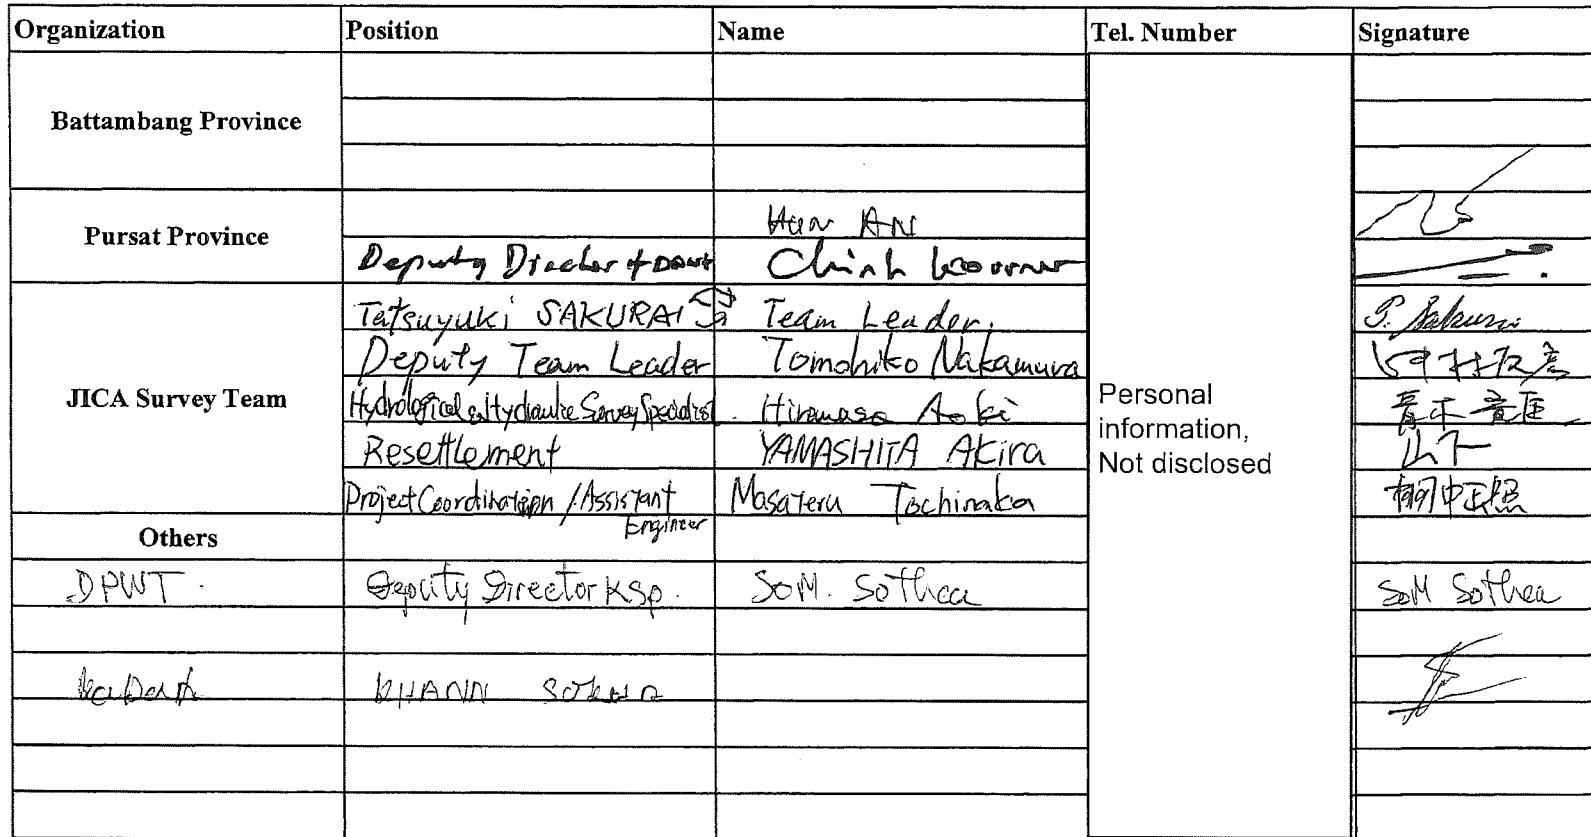 Organization Position Name Tel. Number Signature
Battambang Province
Pursat Province
Hun AN
Deputy Director of DPWT Chinh
JICA Survey Team
Tatsuyuki SAKURAI Team Leader. T. Sakurai
Deputy Team Leader Tomohiko Nakamura 中村友彦
Hydrological & Hydraulic Survey Specialist. Hiromasa Aoki 青木
Resettlement YAMASHITA Akira 山下
Project Coordination / Assistant Engineer Masateru Tochinaka 栃中正照
Personal
information,
Not disclosed
Others
DPWT. Deputy Director KSP. SOM. Sothea SOM Sothea
KHANN SOKHA